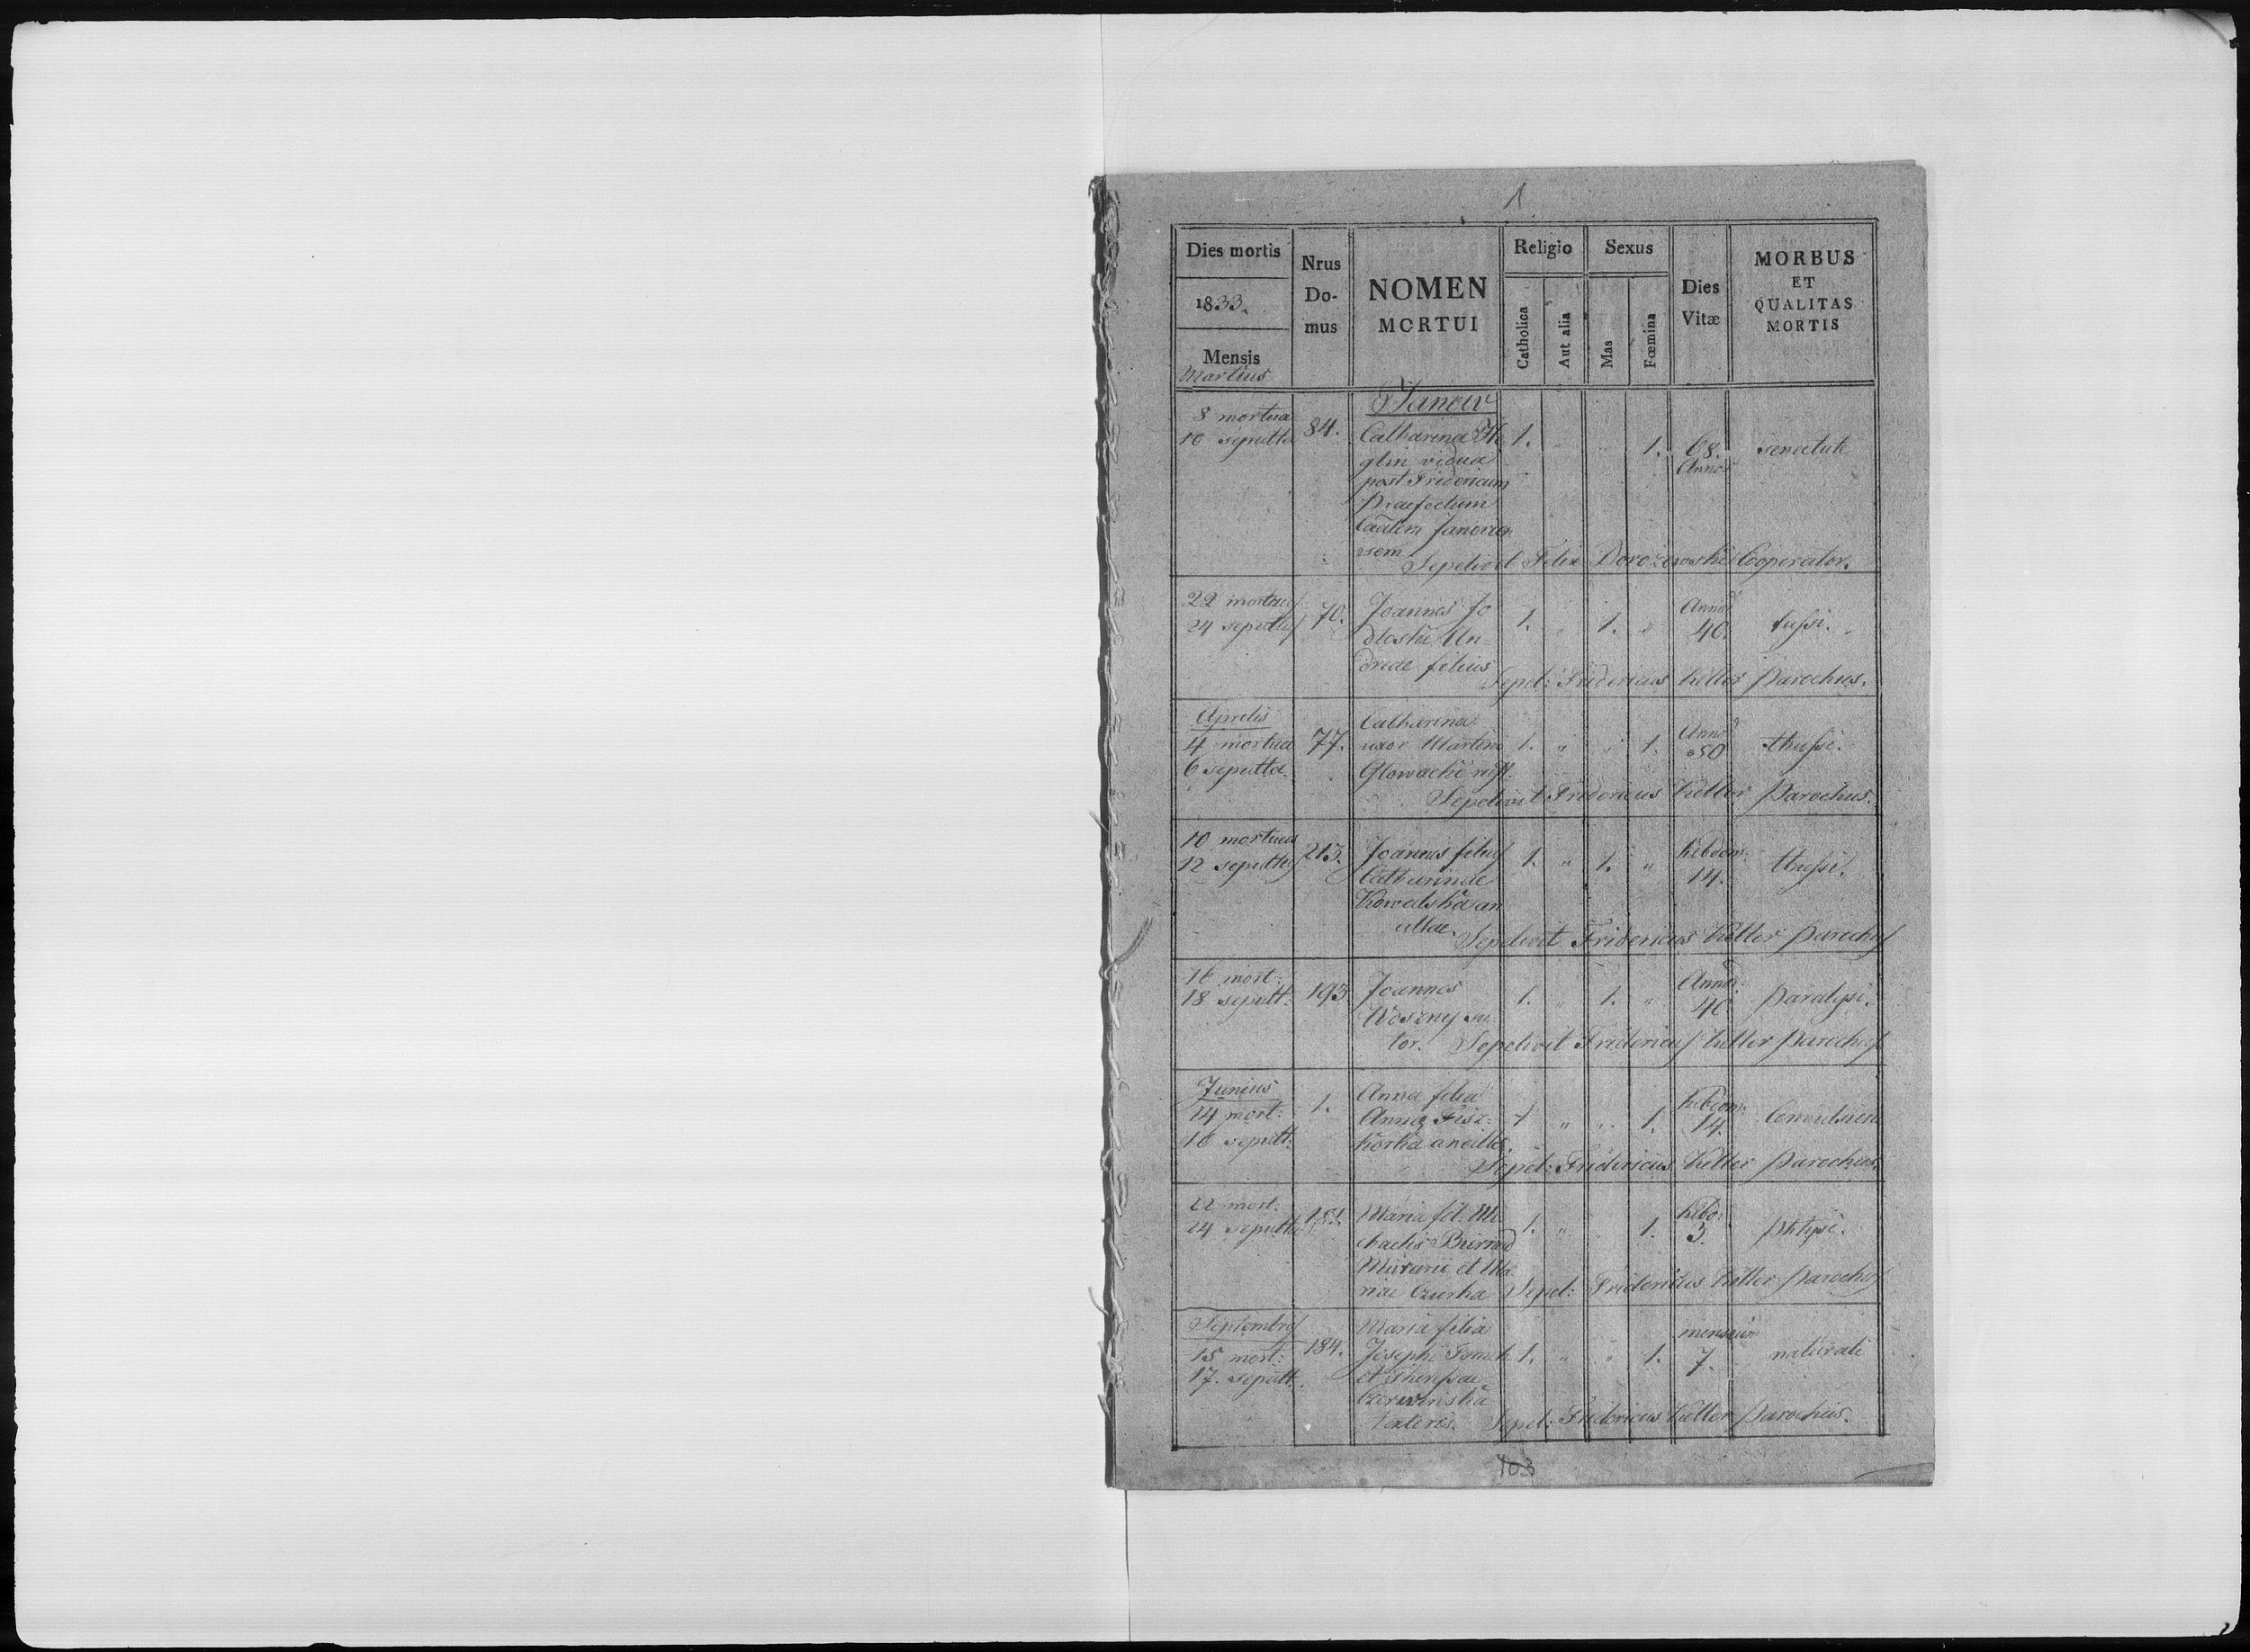 1
Dies mortis
1833.
Mensis
Martius
Nrus
Do-
mus
NOMEN
MORTUI
Religio
Catholica
Aut alia
Sexus
Mas
Fœmina
Dies
Vitæ
MORBUS
ET
QUALITAS
MORTIS
Janow
8 mortua
10 sepulta
84.
Catharina
glin vidua
post Fridericum
Praefectum
Janovien
sem
1. " " 1.
68.
Annor
senectute
Sepelivit Felix Dorożewski Cooperator.
22 mortuus
24 sepultus
70.
Joannes Jo
dleski An-
dreae filius
1. " 1. "
Annor
40.
tussi.
Sepel: Fridericus Keller Parochus.
Aprilis
4 mortua
6 sepulta.
77.
Catharina
uxor Martini
Głowacki
1. " " 1.
Annor
50
thussi.
Sepelivit Fridericus Keller Parochus.
10 mortuus
12 sepultus
213.
Joannes filius
Catharinae
Kowalska an
cillae.
1. " 1. "
hebdom:
14.
thussi.
Sepelivit Fridericus Keller Parochus
16 mort:
18 sepult:
193.
Joannes
Woszny su-
tor.
1. " 1. "
Annor:
40.
Paralysi.
Sepelivit Fridericus Keller Parochus
Junius
14 mort:
16 sepult:
1.
Anna filia
Annae
ancillae.
1 " " 1.
hebdom:
14.
Sepel: Fridericus Keller Parochus.
22 mort.
24 sepulta
Maria fil: Mi
chaelis
Murarii et Ma
riae
1. " " 1.
hebd:
3.
phtysi.
Sepel: Fridericus Keller Parochus
Septembris
15 mort:
17. sepult.
184.
Maria filia
Josephi
et Theressae
Czerwinska
textoris.
1. " " 1.
mensium
7.
naturali
Sepel: Fridericus Keller Parochus.
103